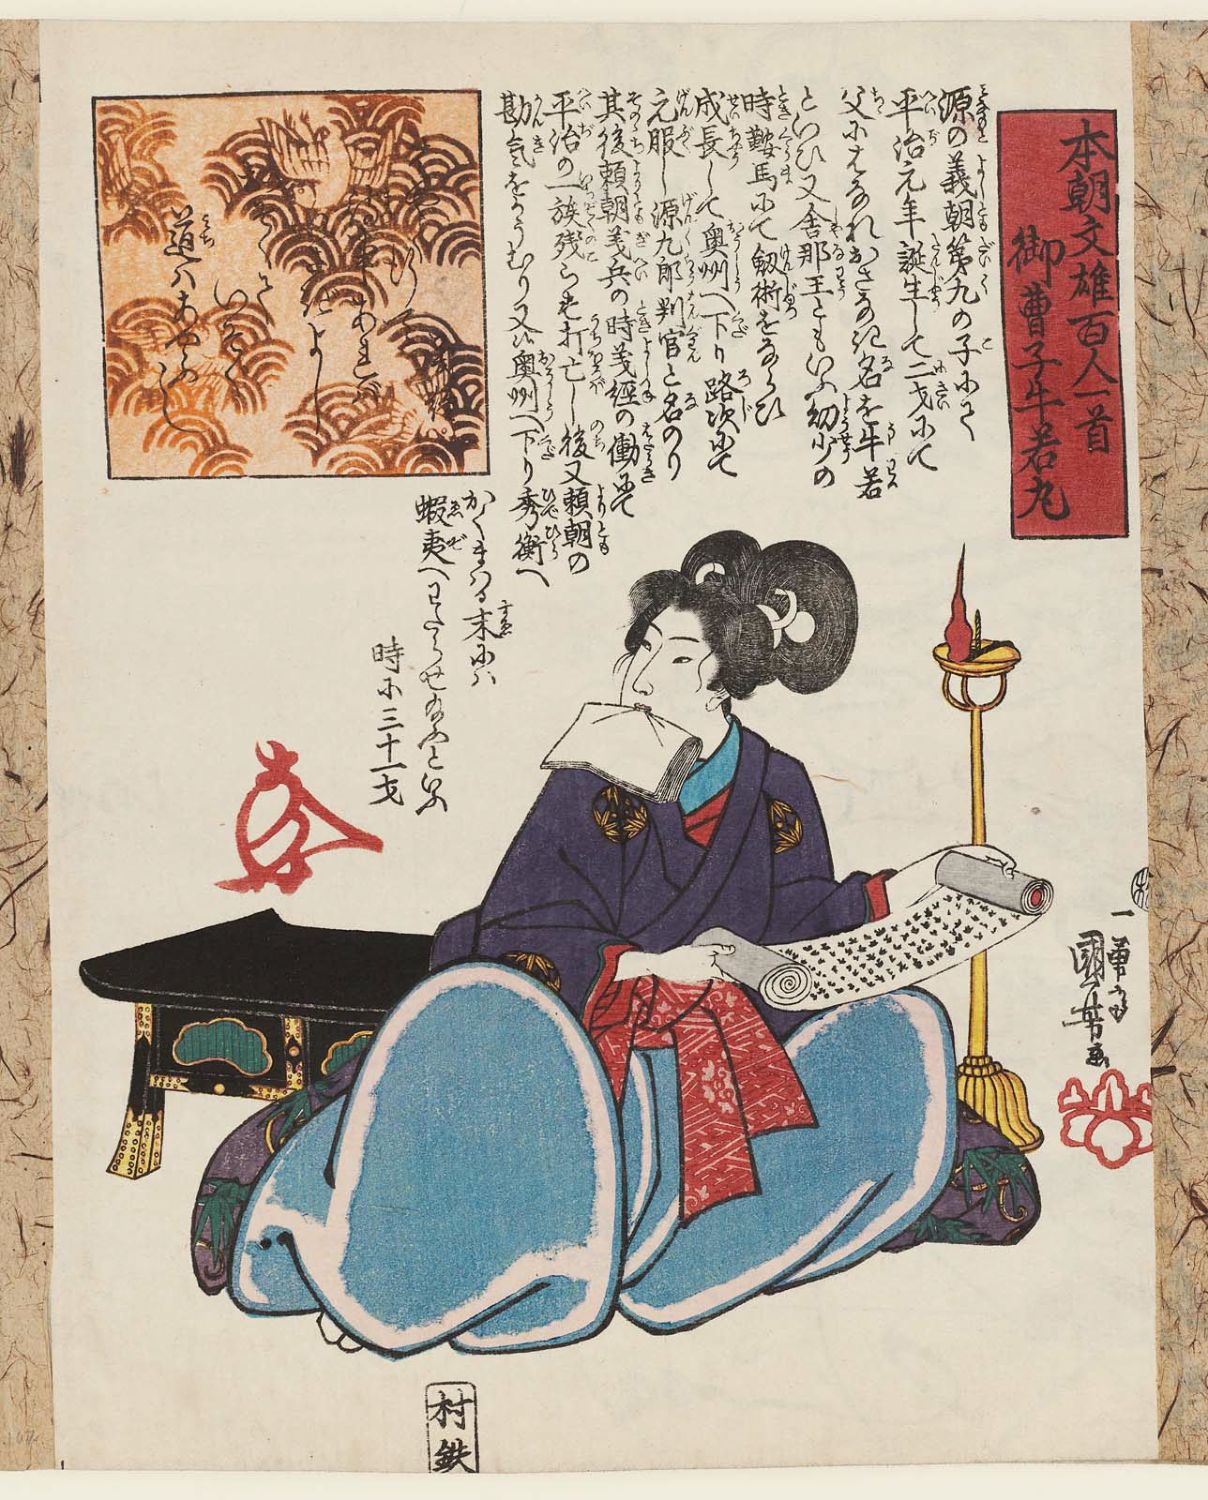 本朝文雄百人一首
御曹子牛若丸
源の義朝第九の子にて
平治元年誕生して二才にて
父にはなれおさな名を牛若
といひ又舎那王ともいふ幼少の
時鞍馬にて剱術をならひ
成長して奥州へ下り路次にて
元服し源九郎判官と名のり
其後頼朝義兵の時義経の働にて
平治の一族残らず打亡し後又頼朝の
勘気をかうむり又々奥州へ下り秀衡へ
かくまはる末には
蝦夷へわたらせ給ふといふ
時に三十一才
道はあやふし
一勇斎
國芳画
村鉄